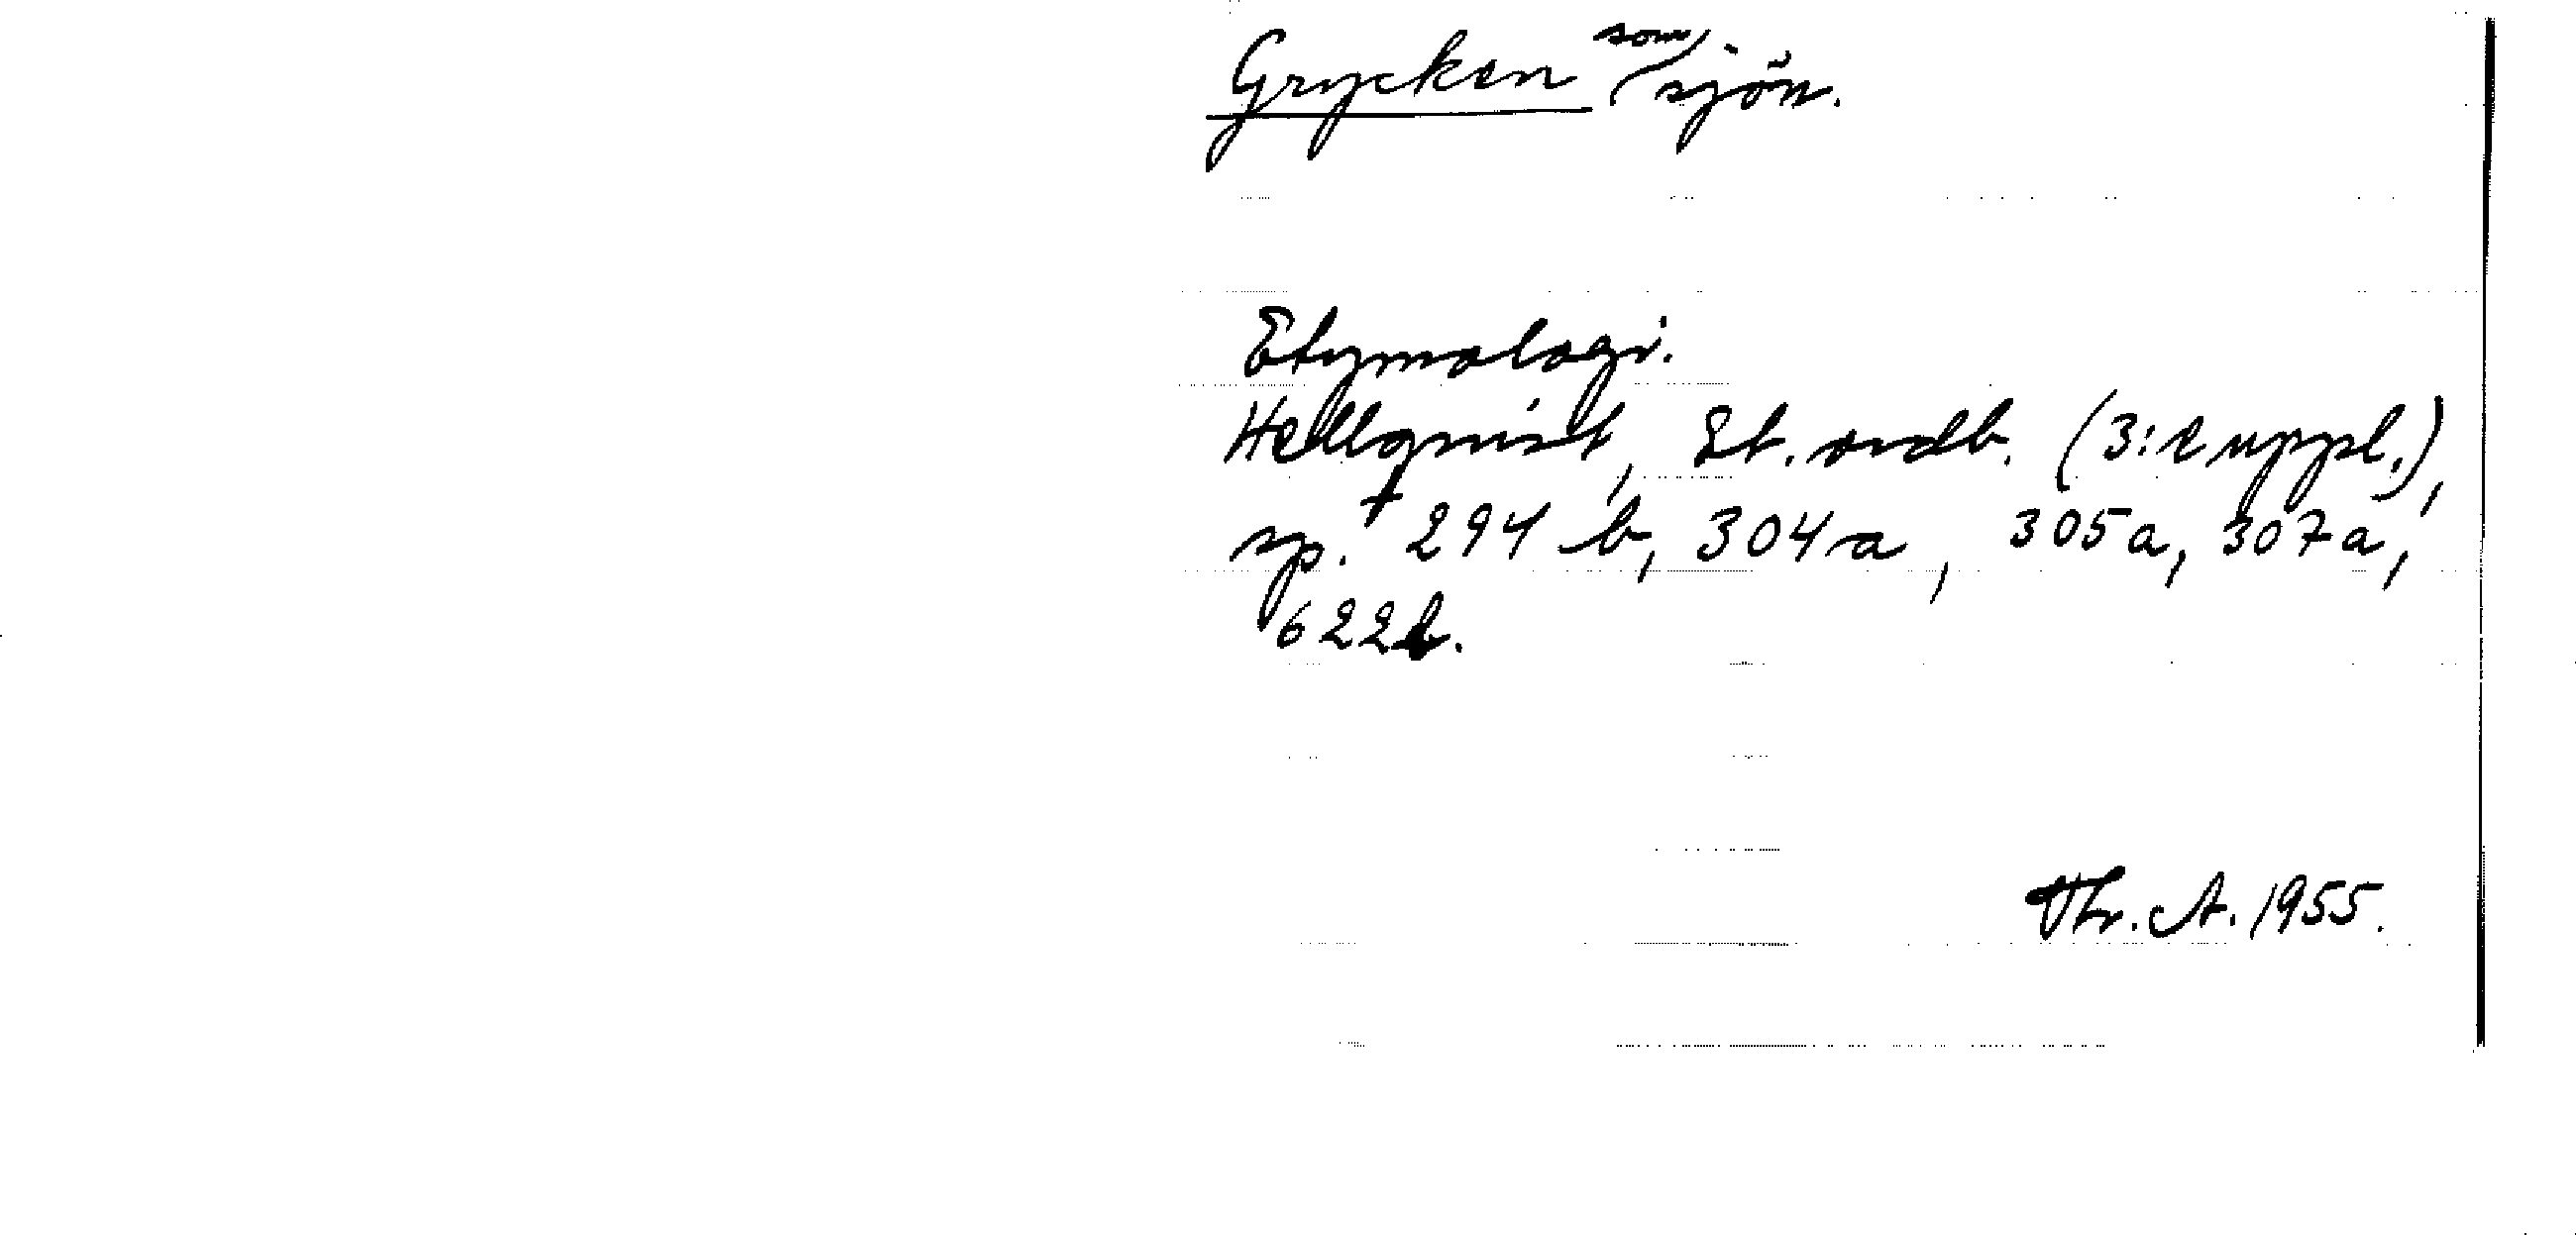 Grycken som sjön.
Etymologi.
Hellquist, Et. ordb. (3:e uppl.),
sp. 294 b, 304a, 305a, 307a,
622b.
Thr. A. 1955.